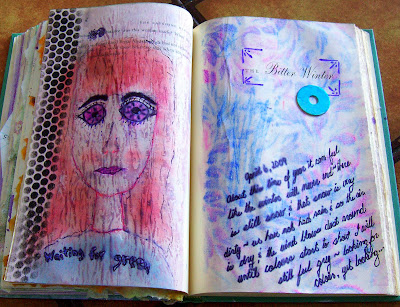 Waiting for green
THE Bitter Winter
April 6, 2009
About this time of year it can feel
like the winter will never end - there
is still snow & that snow is very
dirty - we have not had rain & so the air
is dry & the wind blows dust around
until colours start to show I will
still feel grey - looking for
colour, get looking...